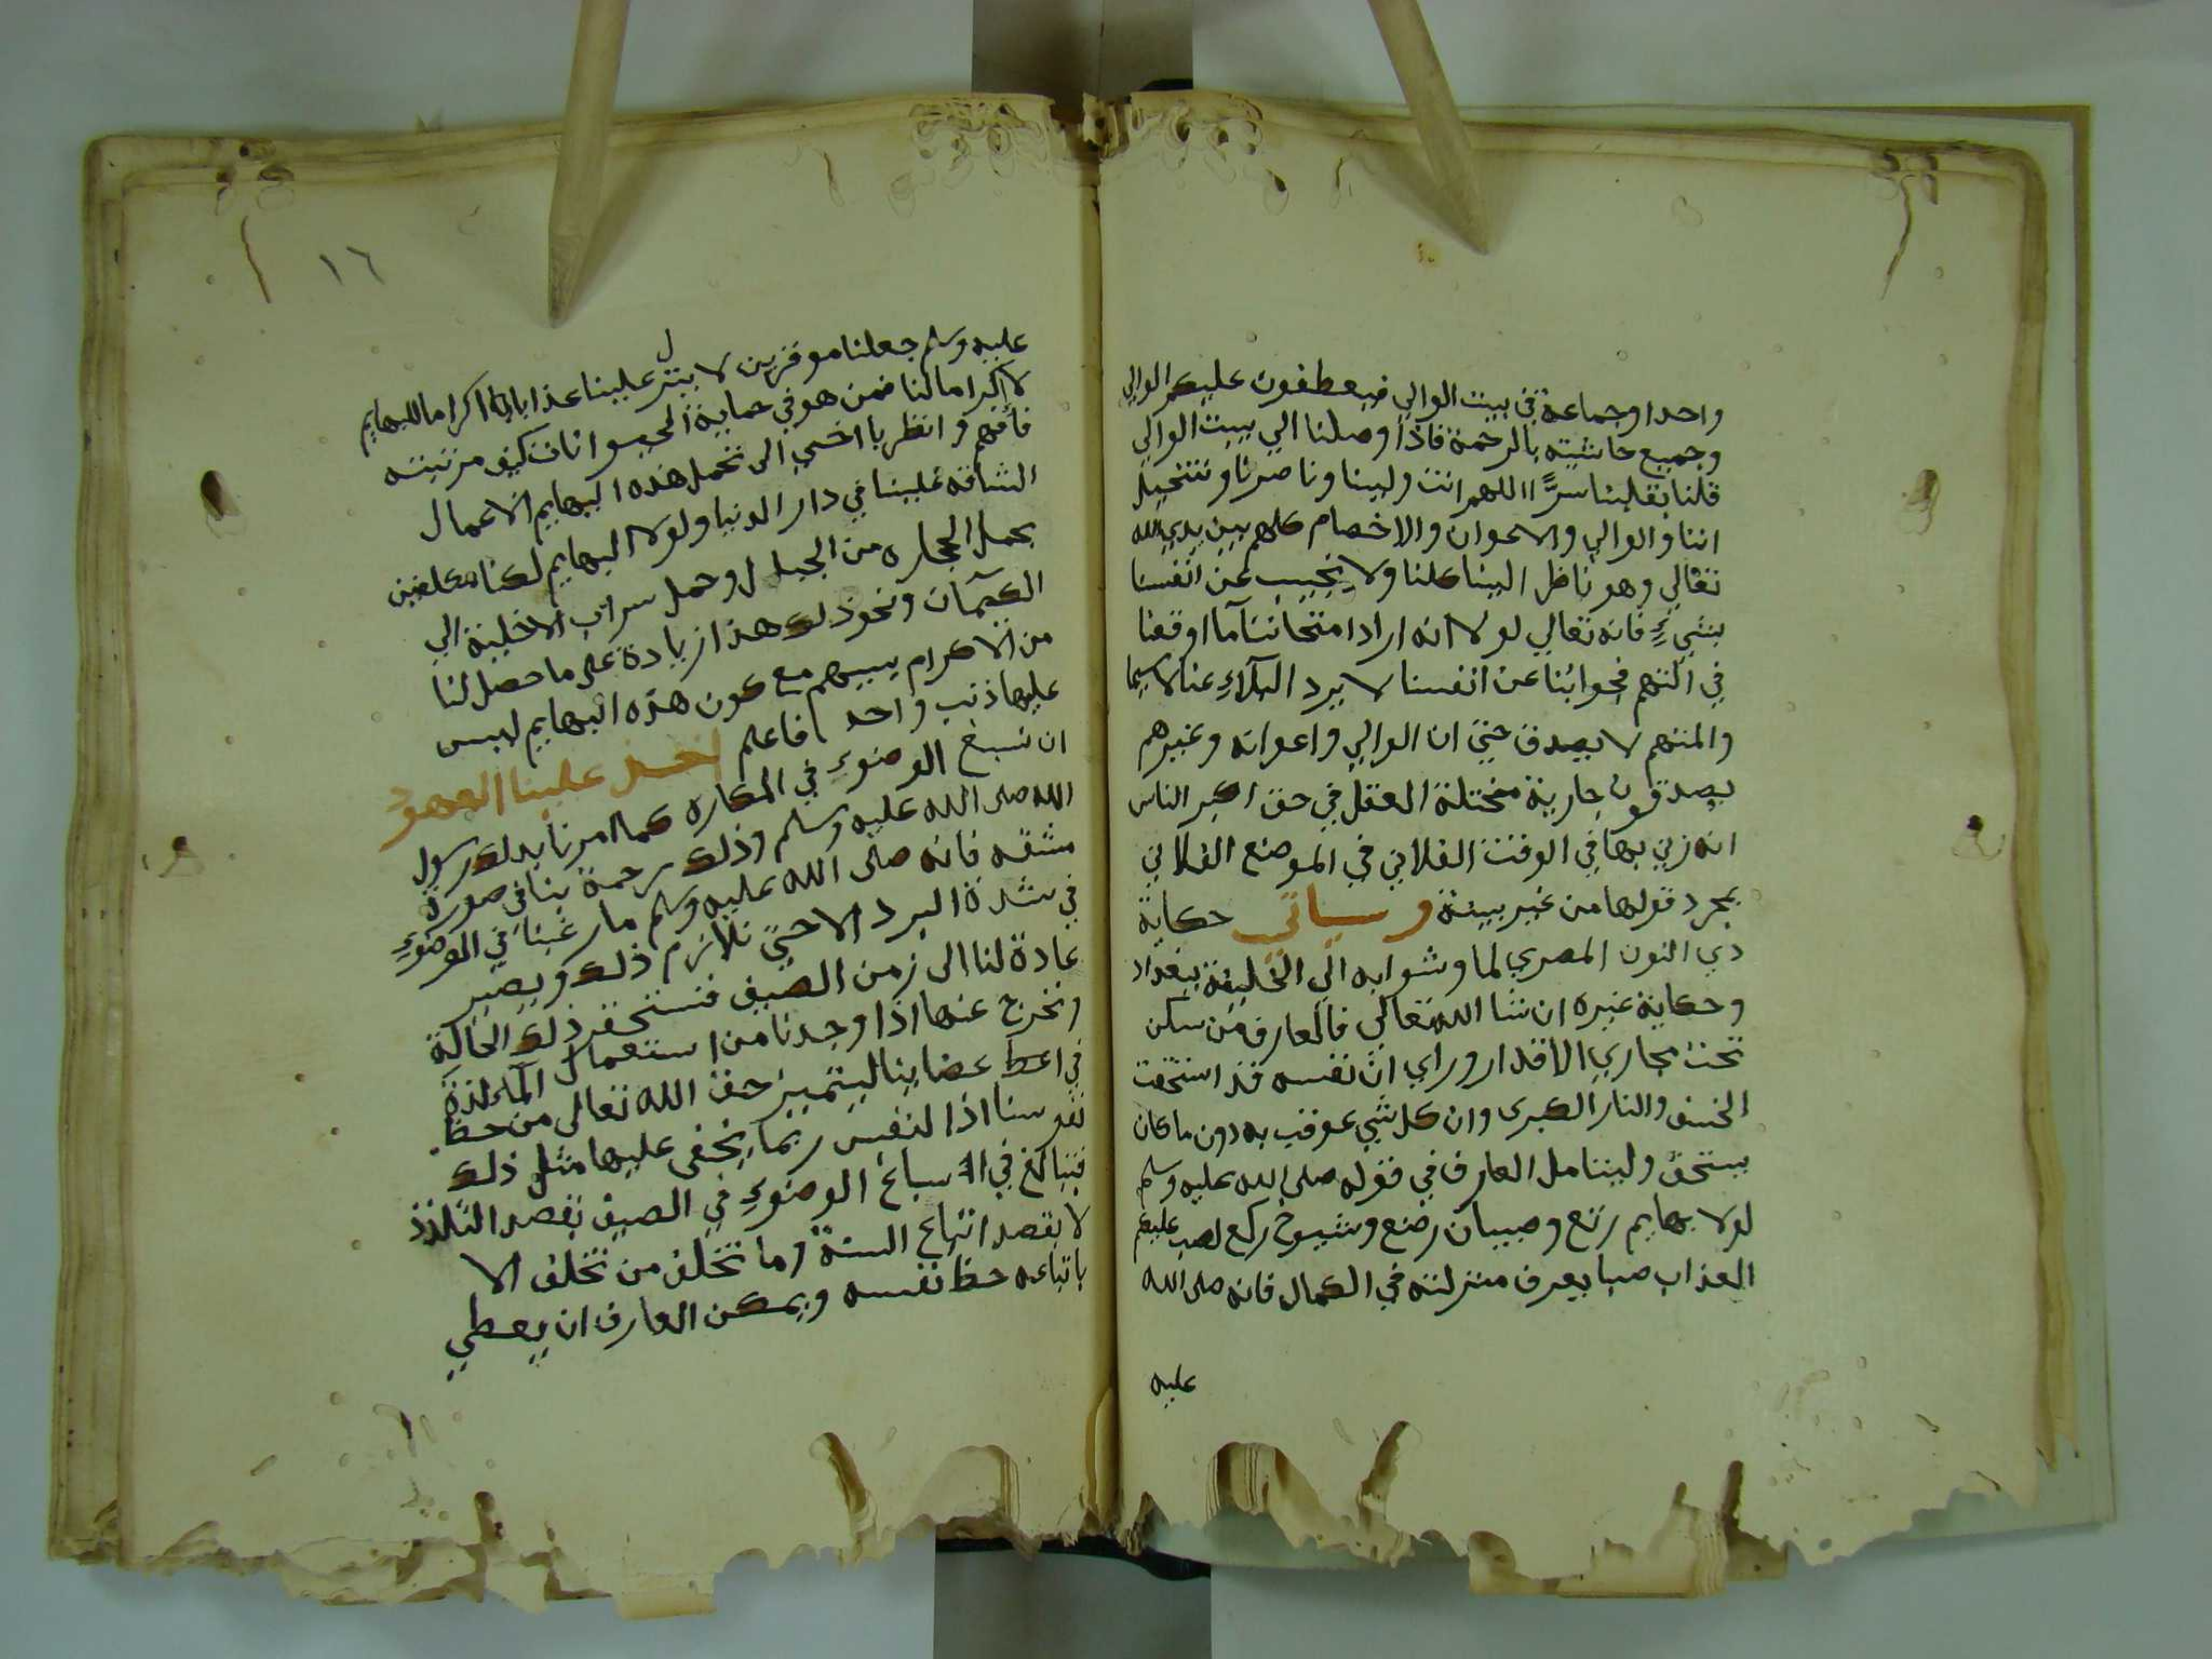 واحدا وجماعة في بيت الوالي فيعطفون عليكم الوالي
وجميع حاشيته بالرحمة فاذا وصلنا الي بيت الوالي
قلنا بقلبنا سرًّا اللهم انت ولينا وناصرنا ونتخيل
اننا والوالي والاعوان والاخصام كلهم بين يدي الله
تعالي وهو ناظر الينا كلنا ولا نجيب عن انفسنا
بشيءٍ فانه تعالي لولا انه اراد امتحاننا ما اوقعنا
في التهم فجوابنا عن انفسنا لا يرد البلاءِ عنا لاسيما
والمتهم لا يصدق حتى ان الوالي واعوانه وغيرهم
يصدقون جارية مختلة العقل في حق اكبر الناس
انه زني بها في الوقت الفلاني في الموضع الفلاني
بمجرد قولها من غير بينة وسياتي حكاية
ذي النون المصري لما وشوا به الي الخليفة ببغداد
وحكاية غيره ان شا الله تعالي فالعارف من سكن
تحت مجاري الاقدار وراي ان نفسه قد استحقت
الخسف والنار الكبرى وان كل شي عوقب به دون ما كان
يستحق وليتامل العارف في قوله صلى الله عليه وسلم
لولا بهايم رتع وصبيان رضع وشيوخ ركع لصب عليكم
العذاب صبا يعرف منزلته في الكمال فانه صلى الله
عليه
١٦
عليه وسلم جعلنا موقرين لا ينزل علينا عذابا اكراما للبهايم
لا اكراما لنا فمن هو في حماية الحيوانات كيف مرتبته
فافهم وانظر يا اخي الى تحمل هذه البهايم الاعمال
الشاقه علينا في دار الدنيا ولولا البهايم لكنا مكلفين
بحمل الحجاره من الجبل وحمل سراب الاخلية الي
الكيمان ونحو ذلك هذا زيادة على ما حصل لنا
من الاكرام بسببهم مع كون هذه البهايم ليس
عليها ذنب واحد فاعلم اخذ علينا العهود
ان نسبغ الوضوءِ في المكاره كما امرنا بذلك رسول
الله صلى الله عليه وسلم وذلك رحمة بنا في صورة
مشقه فانه صلى الله عليه وسلم ما رغبنا في الوضوءِ
في شدة البرد الا حتى نلازم ذلك ويصير
عادة لنا الى زمن الصيف فنستحقر ذلك الحالة
ونخرج عنها اذا وجدنا من استعمال الماء لذة
في اعضاينا ليتميز حق الله تعالى من حظ
نفوسنا اذ النفس ربما يخفى عليها مثل ذلك
فتبالغ في الاسباغ الوضوءِ في الصيف بقصد التلذذ
لا بقصد اتباع السنة وما تخلف من تخلف الا
باتباعه حظ نفسه ويمكن العارف ان يعطي